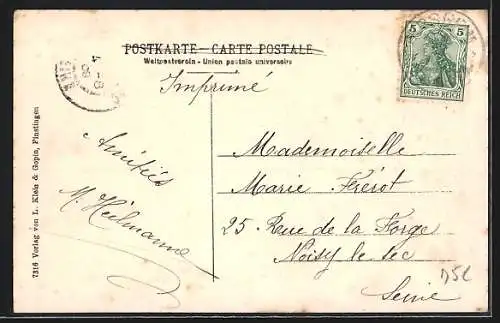 POSTKARTE - CARTE POSTALE
Weltpostverein - Union postale universelle
Imprimé
5 5
DEUTSCHES REICH
Amitiés
M. Heilmann
Mademoiselle
Marie Frérot
25 Rue de la Forge
Noisy le Sec
Seine
DSC
7316 Verlag von L. Klein & Gopin, Finstingen